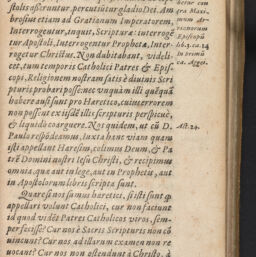 stolis asseruntur, percutit ur gladio Dei. Am-
brosius etiam ad Gratianum Imperatorem,
Interrogentur, inquit, Scripturæ: interrogē
tur Apostoli, Interrogentur Prophetæ, Inter-
rogetur Christus. Non dubitabant, videli-
cet, tum temporis Catholici Patres & Epis-
copi, Religionem nostram satis è diuinis Scri
pturis probari posse: nec vnquàm illi quenquā
habere ausi sunt pro Hæretico, cuius errorem
non possent ex iisdē illis scripturis perspicuè,
& liquidò coarguere. Nos quidem, vt cū D.
Paulo respōdeamus, iuxta hanc viam quam
isti appellant Hæresim, colimus Deum, & Pa
trē Domini nostri Iesu Christi, & recipimus
omnia, quæ aut in lege, aut in Prophetis, aut
in Apostolorum libris scripta sunt.
Quare si nos sumus hæretici, si isti sunt
appellari volunt Catholici, cur non faciunt
id quod vidēt Patres Catholicos viros, sem-
per fecisse? Cur nos è Sacris Scripturis non cō
uincunt? Cur nos ad illarum examen non re
uocant? Cur nos non ostendunt à Christo, à
tra Maxi-
mum Ar-
rianorum
Episcopū
lib. 3. ca. 14
In primū
ca. Aggei.
Act. 24.